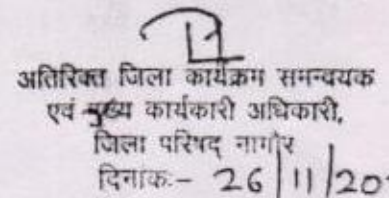 अतिरिक्त जिला कार्यक्रम समन्वयक
एवं मुख्य कार्यकारी अधिकारी,
जिला परिषद् नागौर
दिनांकः- 26/11/20